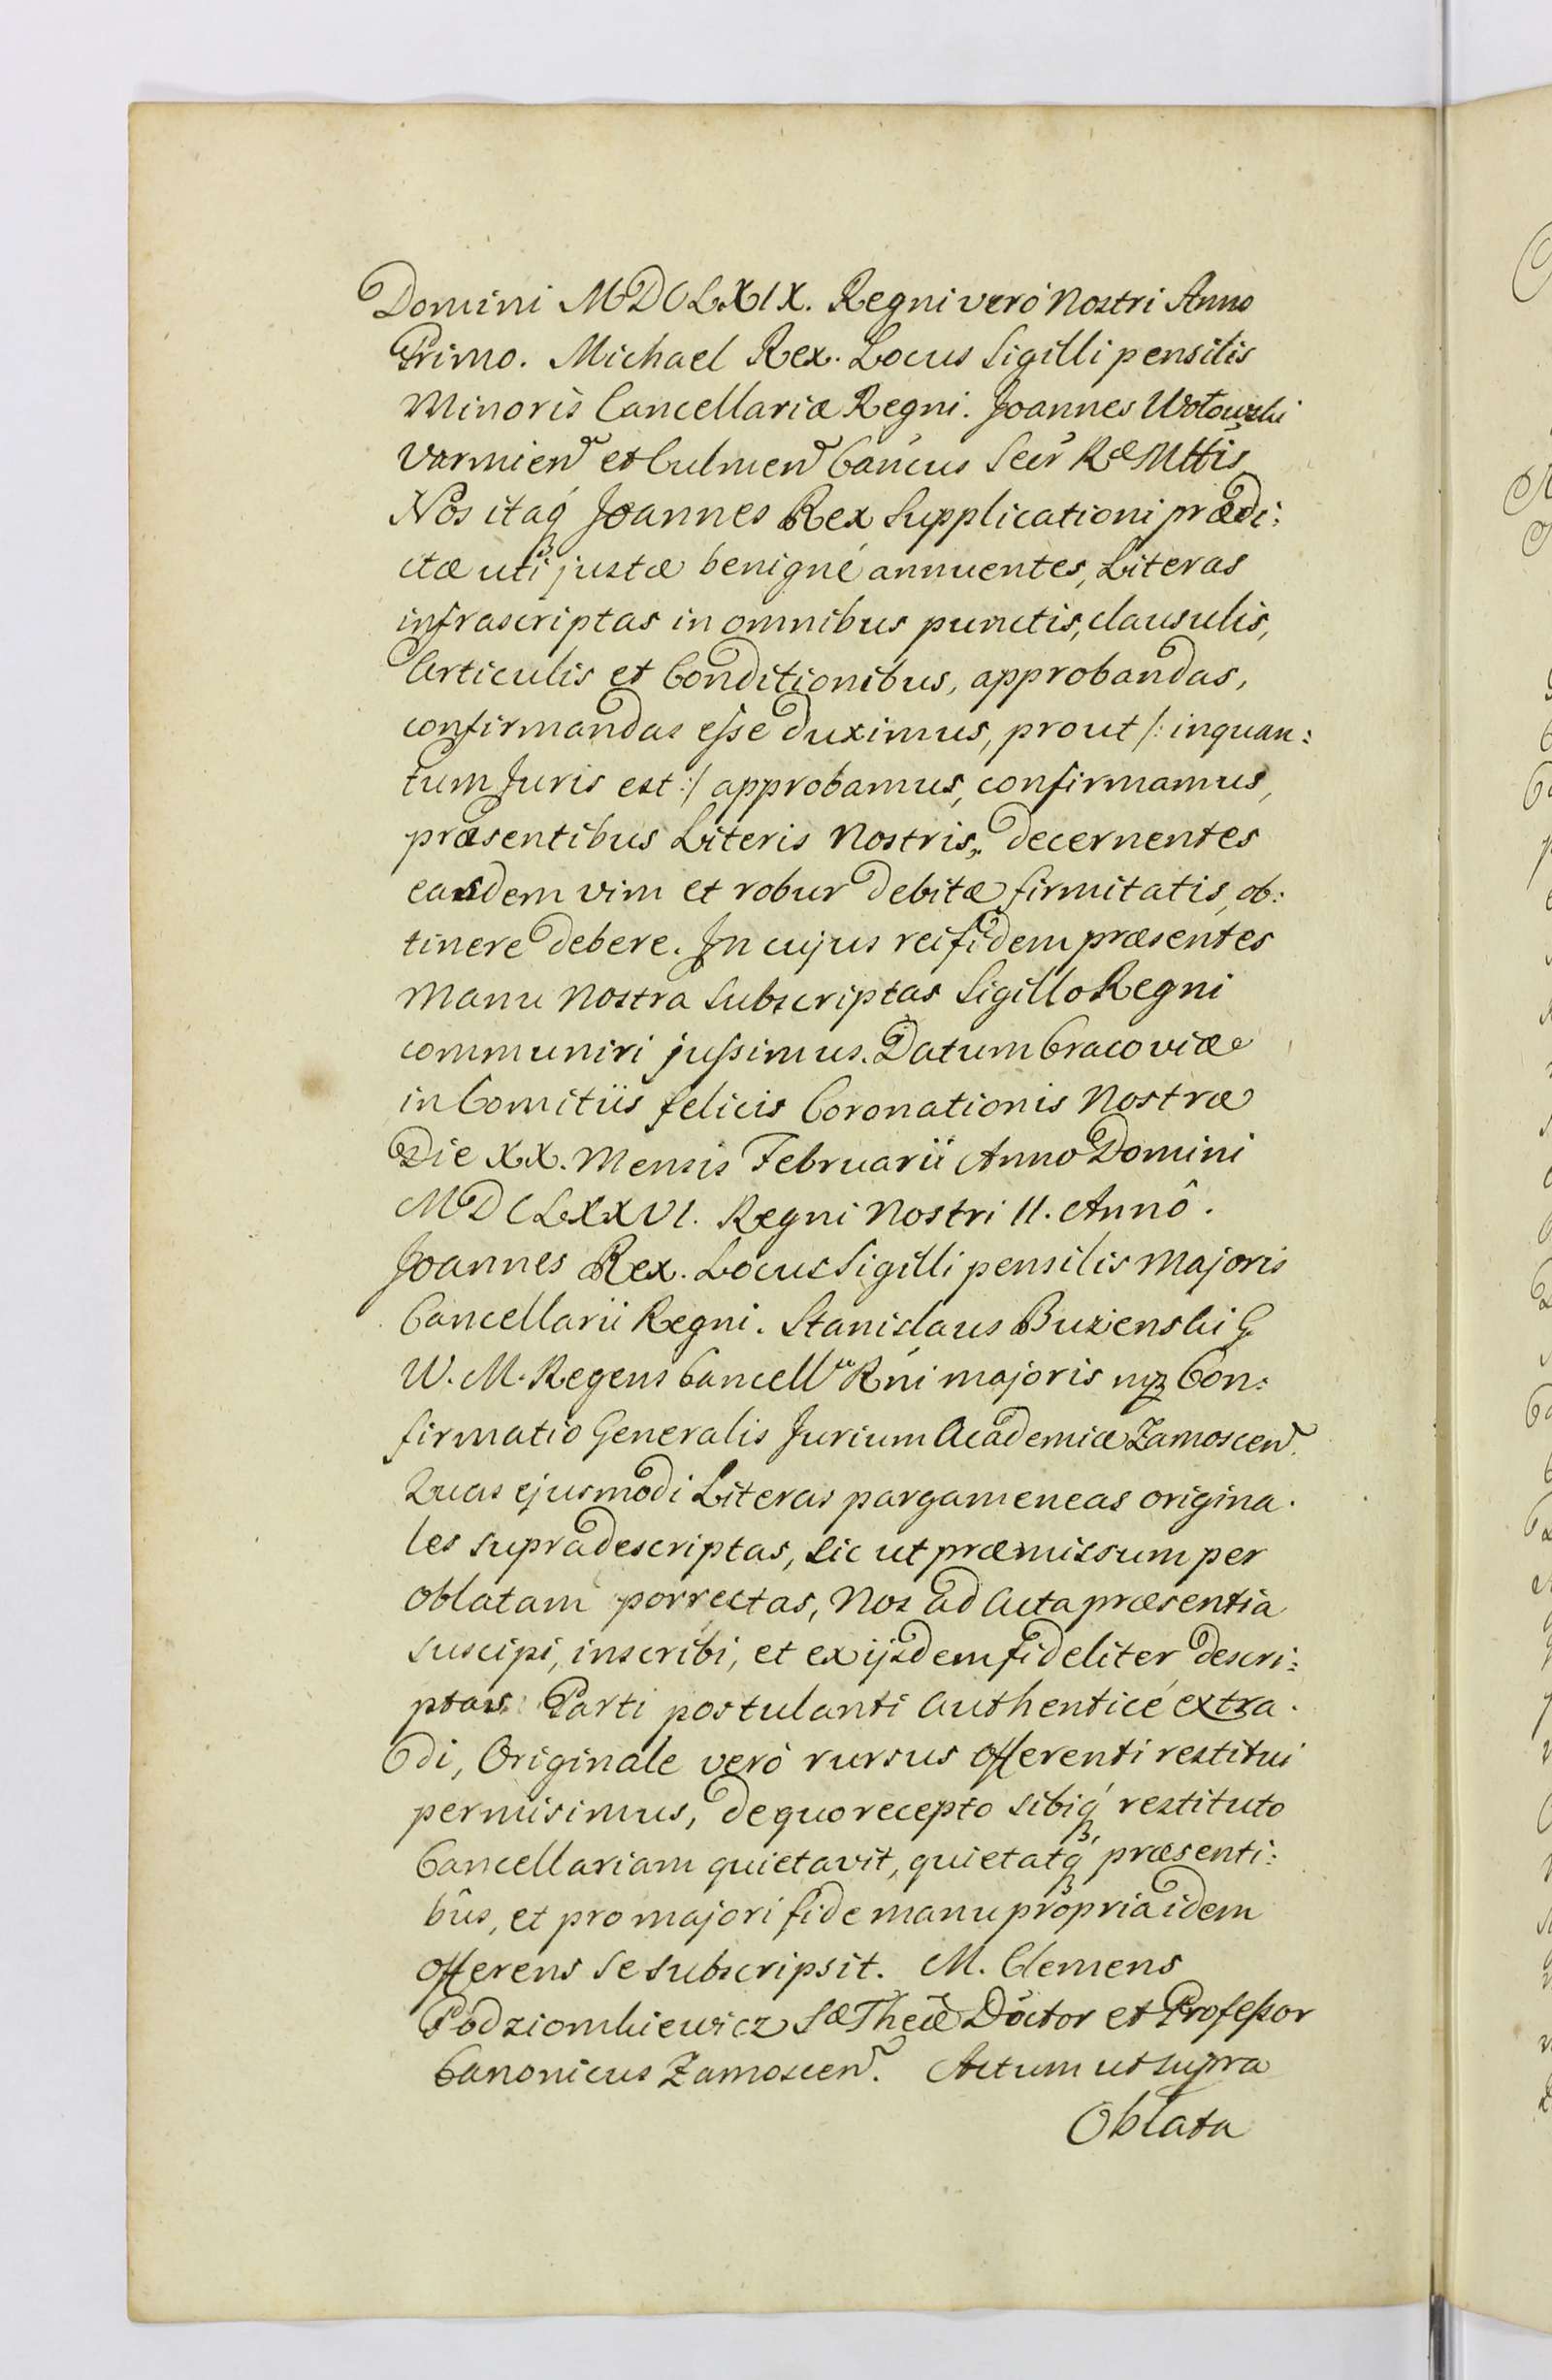 Domini MDCLXIX. Regni veró Nostri Anno
Primo. Michael Rex. Locus Sigilli pensilis
Minoris Cancellariæ Regni. Joannes Wołowski
Varmien et Culmen Cancus Secr Ræ Mttis
Nos itaq́ Joannes Rex Supplicationi prædi:
ctæ uti justæ benigné annuentes, Literas
infrascriptas in omnibus punctis, clausulis,
Articulis et Conditionibus, approbandas,
confirmandas esse duximus, prout /: inquan:
tum Juris est :/ approbamus, confirmamus,
præsentibus Literis Nostris, decernentes
easdem vim et robur debitæ firmitatis, ob:
tinere debere. In cujus rei fidem præsentes
Manu Nostra Subscriptas Sigillo Regni
communiri jussimus. Datum Cracoviæ
in Comitiis felicis Coronationis Nostræ
Die XX. Mensis Februarii Anno Domini
MDCLXXVI. Regni Nostri II. Annô.
Joannes Rex. Locus Sigilli pensilis Majoris
Cancellarii Regni. Stanislaus Buzenski G
W. M. Regens Cancell Rni majoris mp Con:
firmatio Generalis Jurium Academiæ Zamoscen.
Quas ejusmodi Literas pargameneas origina.
les supradescriptas, sic ut præmissum per
oblatam porrectas, Nos ad Acta præsentia
suscipi, inscribi, et ex ijsdem fideliter descri:
ptas Parti postulanti Authenticé extra.
di, Originale veró rursus offerenti restitui
permisimus, de quo recepto sibiq́ restituto
Cancellariam quietavit, quietatq́ præsenti:
bûs, et pro majori fide manu propria idem
offerens se subscripsit. M. Clemens
Podziomkiewicz Sæ Theæ Doctor et Professor
Canonicus Zamoscen. Actum ut supra
Oblata